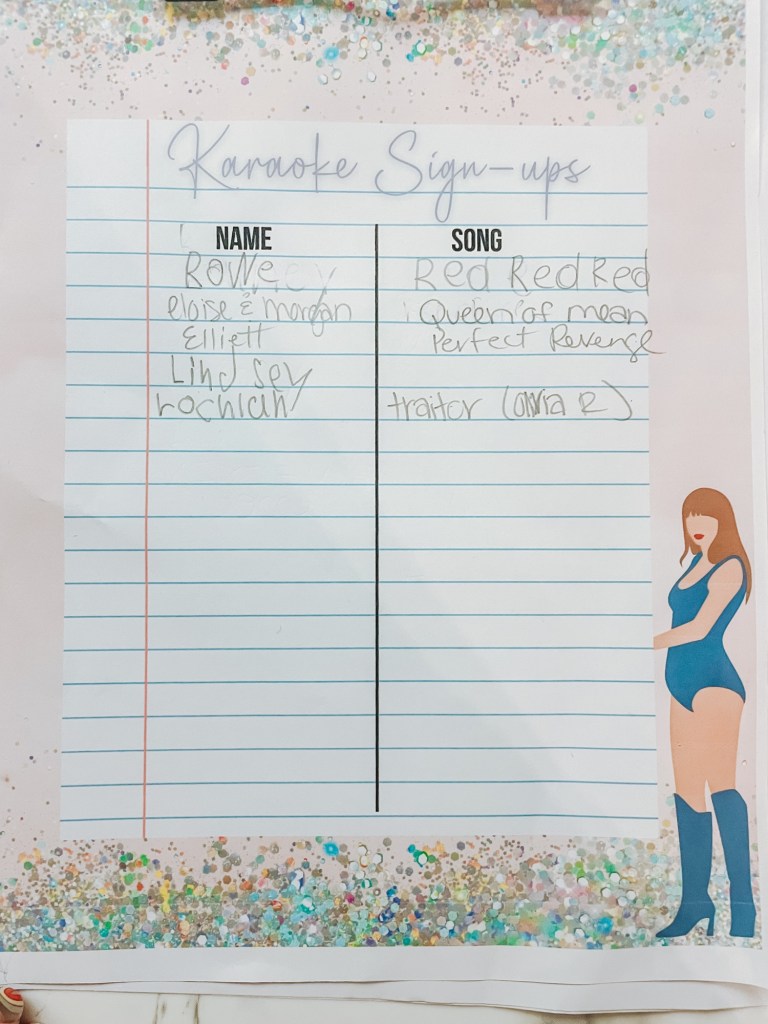 Karaoke Sign-ups
NAME SONG
Rowe Red Red Red
eloise & morgan Queen of mean
Elliett Perfect Revenge
Lindsey
Lochlan traitor (olivia R)